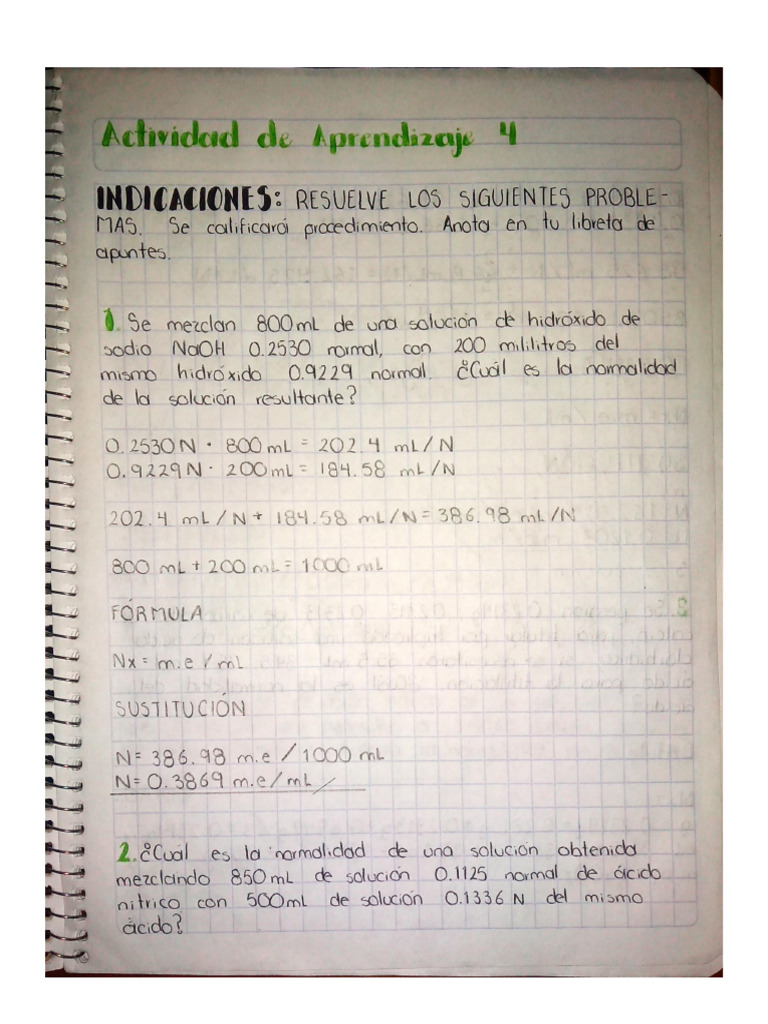 Actividad de Aprendizaje 4
INDICACIONES: RESUELVE LOS SIGUIENTES PROBLE-
MAS. Se calificará procedimiento. Anota en tu libreta de
apuntes.
1. Se mezclan 800mL de una solución de hidróxido de
sodio NaOH 0.2530 normal, con 200 mililitros del
mismo hidróxido 0.9229 normal. ¿Cuál es la normalidad
de la solución resultante?
0.2530N · 800mL = 202.4 mL/N
0.9229N · 200mL = 184.58 mL/N
202.4 mL/N + 184.58 mL/N = 386.98 mL/N
800 mL + 200 mL = 1000 mL
FÓRMULA
Nx = m.e / mL
SUSTITUCIÓN
N= 386.98 m.e / 1000 mL
N= 0.3869 m.e/mL
2. ¿Cuál es la normalidad de una solución obtenida
mezclando 850mL de solución 0.1125 normal de ácido
nítrico con 500mL de solución 0.1336 N del mismo
ácido?